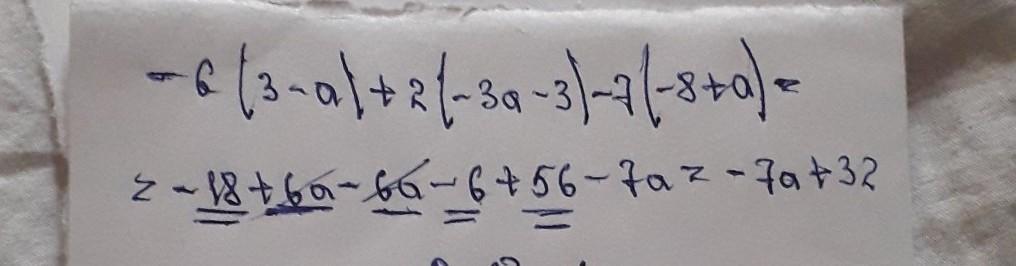 -6(3-a)+2(-3a-3)-7(-8+a)=
=-18+6a-6a-6+56-7a=-7a+32